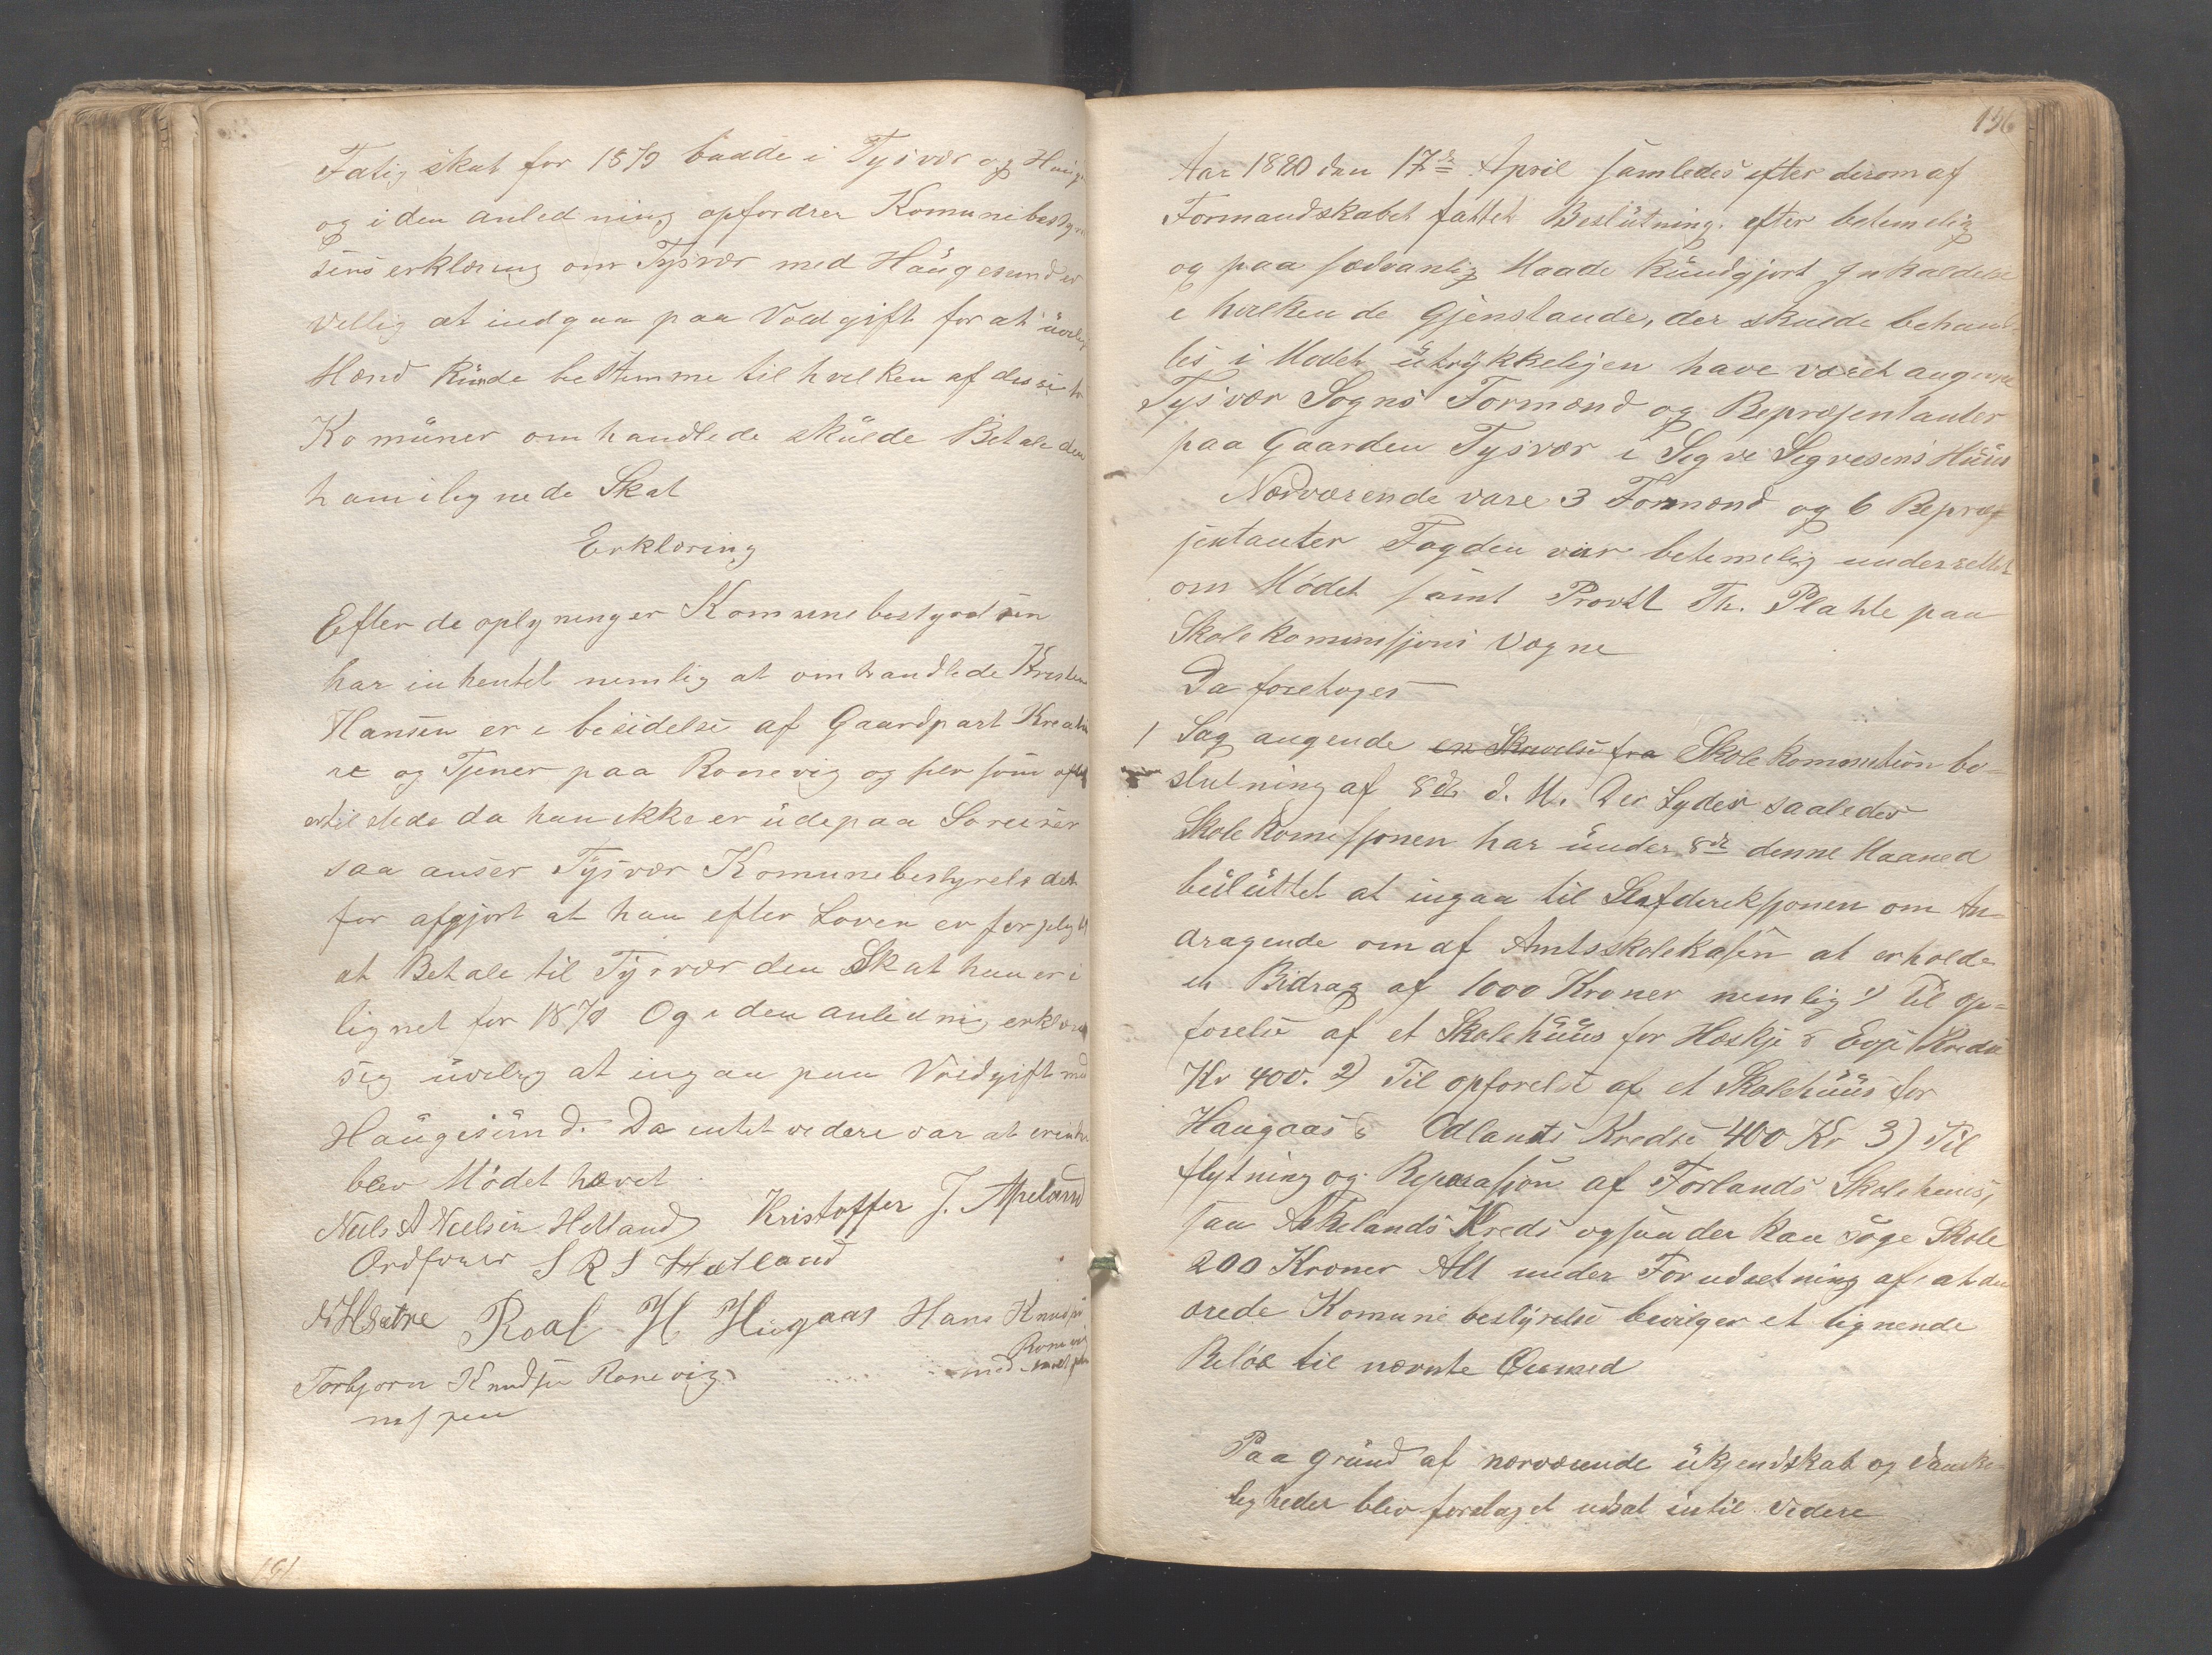 Fatigskat for 1879 baade i Tysvær og Haug
og i den anledning opfordrer Komunebesty
sens erklæring om Tysvær med Haugesund er
vellig at indgaa paa Voldgift for at uvel
Hænd kunde bestemme til hvilken af disse to
Komuner omhandlede skulde Betale den
ham ilignede Skat
Erklæring
Efter de oplyninger Komunebestyrelsen
har inhentet nemlig at omhandlede Kristen
Hansen er i besidelse af Gaardpart Kreatu
re og Tjener paa Ronevig og personlig ofte
er tilstede da han ikke er ude paa Soreiser
saa anser Tysvær Komunebestyrels det
for afgjort at han efter Loven er forplygt
at Betale til Tysvær den Skat han er i
lignet for 1879 Og i den anledning erklær
sig uvelig at ingaa paa Voldgift med
Haugesund. Da intet vedere var at erindre
blev Mödet hævet
Neels A Neelsen Hetland Kristoffer J. Apeland
Ordfører S R S Hetland
N H Sætre Roal H Hugaas Hans Knudsen
Ronevig
Torbjørn Knudsen Ronevig med paaholden
m f pen
191
156
Aar 1880 den 17de April samledes efter derom af
Formandskabet fattet Beslutning efter betimelig
og paa sædvanlig Maade kundgjort Inkaldelse
i hvilken de Gjenstande, der skulde behand-
les i Modet utrykkeligen have været angivne
Tysvær Sogns Formænd og Repræsentanter
paa Gaarden Tysvær i Segve Segvesens Huus
Nærværende vare 3 Formænd og 6 Repræ-
sentanter Fogden var betimelig underrettet
om Mödet samt Provst Th. Plahte paa
Skolekommissjons Vegne
Da foretoges
1 Sag angende en Skrivelse fra Skolekommision be-
slutning af 8de d. M. Der Lyder saaledes
Skolekomisjonen har under 8de denne Maaned
besluttet at ingaa til Stiftdireksjonen om An-
dragende om af Amtsskolekasen at erholde
et Bidrag af 1000 Kroner nemlig 1) Til Op-
forelse af et Skolehuus for Hæskje & Evje Kredse
Kr 400. 2) Til opforelse af et Skolehuus for
Haugaas & Odlands Kredse 400 Kr 3) Til
flytning og Reparasjon af Forlands Skolehuus,
saa Askelands Kreds ogsaa der kan söge Skole
200 Kroner Alt under Forudsetning af at den
ærede Komunebestyrelse bevilger et lignende
Beløb til nævnte Öiemed
Paa grund af nærværende ukjendskab og Vanske-
ligheder blev forslaget udsat intil Vedere